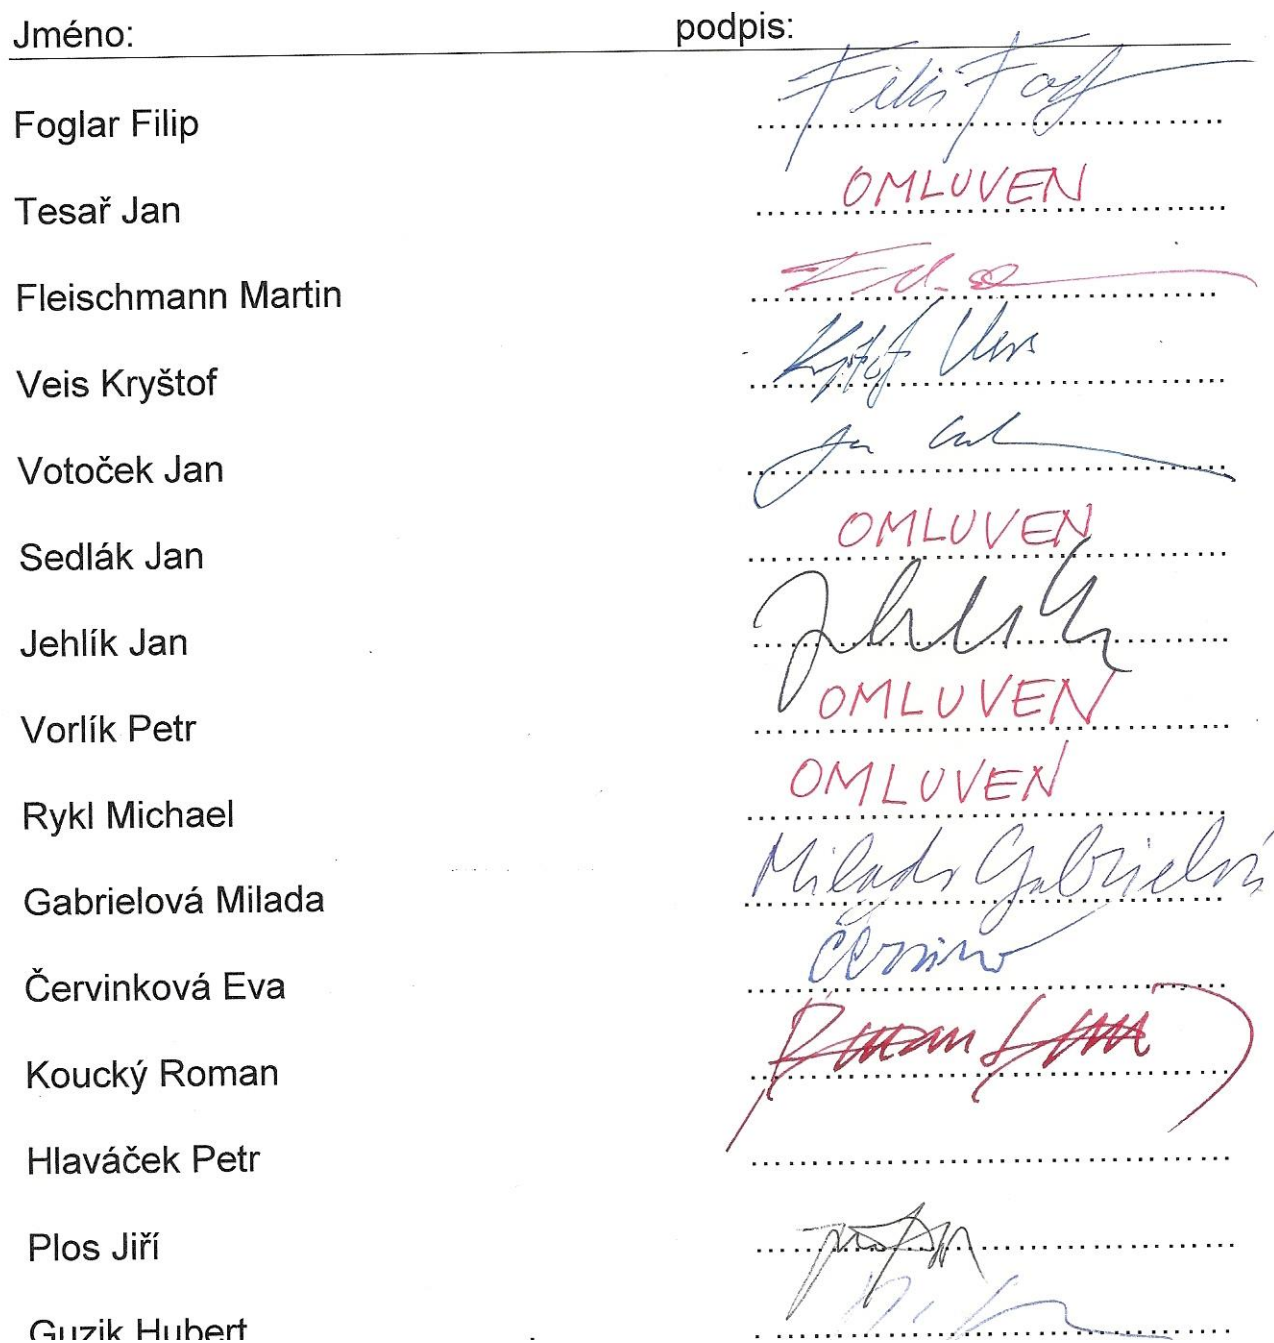 Jméno: podpis:
Foglar Filip
Tesař Jan OMLUVEN
Fleischmann Martin
Veis Kryštof
Votoček Jan
Sedlák Jan OMLUVEN
Jehlík Jan
Vorlík Petr OMLUVEN
Rykl Michael OMLUVEN
Gabrielová Milada Milada Gabrielová
Červinková Eva
Koucký Roman
Hlaváček Petr
Plos Jiří
Guzik Hubert